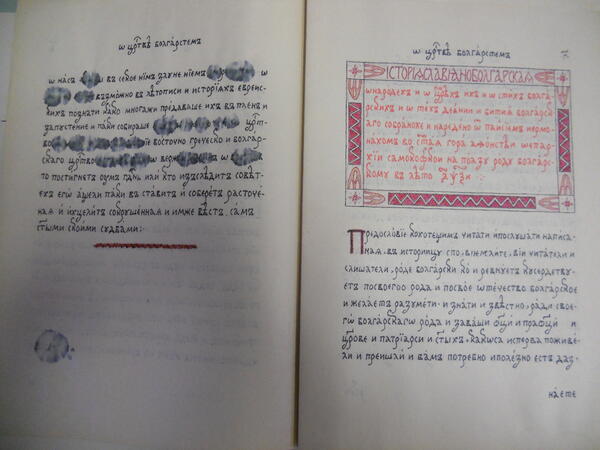 ѡ цр҃твѣ болгарстемъ
ѡ насъ в себое ніе
возможно въ лѣтописи и исторїѧхъ еѵреис-
кихъ познати како многажи предаваше ихъ въ пленъ и
запустение и паки собираше цр҃тво
восточно греческо и болгар-
скаго цр҃тво
то постигнетъ оумъ гд҃нь или кто изслѣдитъ совѣт-
ехъ его ацели паки въ ставитъ и соберетъ расточе-
ная и исцелитъ сокрушенная и имже вѣстъ, самъ
ст҃ыми своими судбами:
ѡ цр҃твѣ болгарстемъ
7
ІСТОРІѦ СЛАВѢНОБОЛГАРСКАѦ
ѡ народехъ и ѡ цр҃ѧхъ ихъ и ѡ ст҃ихъ болга-
рскихъ и ѡ техъ деѧнии и бития болгарск-
аго собраноке и наредено ѡ паисїемъ иермо-
нахомъ во ст҃аѧ гора аѳонстѣи ѡ епар-
хїи самоковскои на ползу роду болгарс-
кому въ лѣто
Предословіе кохотещимъ читати и послушати написа-
ная, въ историицу спо, внемлите, вїи читатели и
слишатели, роде болгарски кои ревнуетъ и усердству-
етъ посвоего рода и посвое ѡтечество болгарское
и желаетъ разумети. и знати и звестно, ради свое-
гѡ болгарскагѡ рода и за ваши ѡц҃ы и праѡц҃ы и
цр҃ове и патрїарси и ст҃ыхъ, какѡ са исперва поживе-
ли и преишли и вамъ потребно и полезно естъ да з-
наете